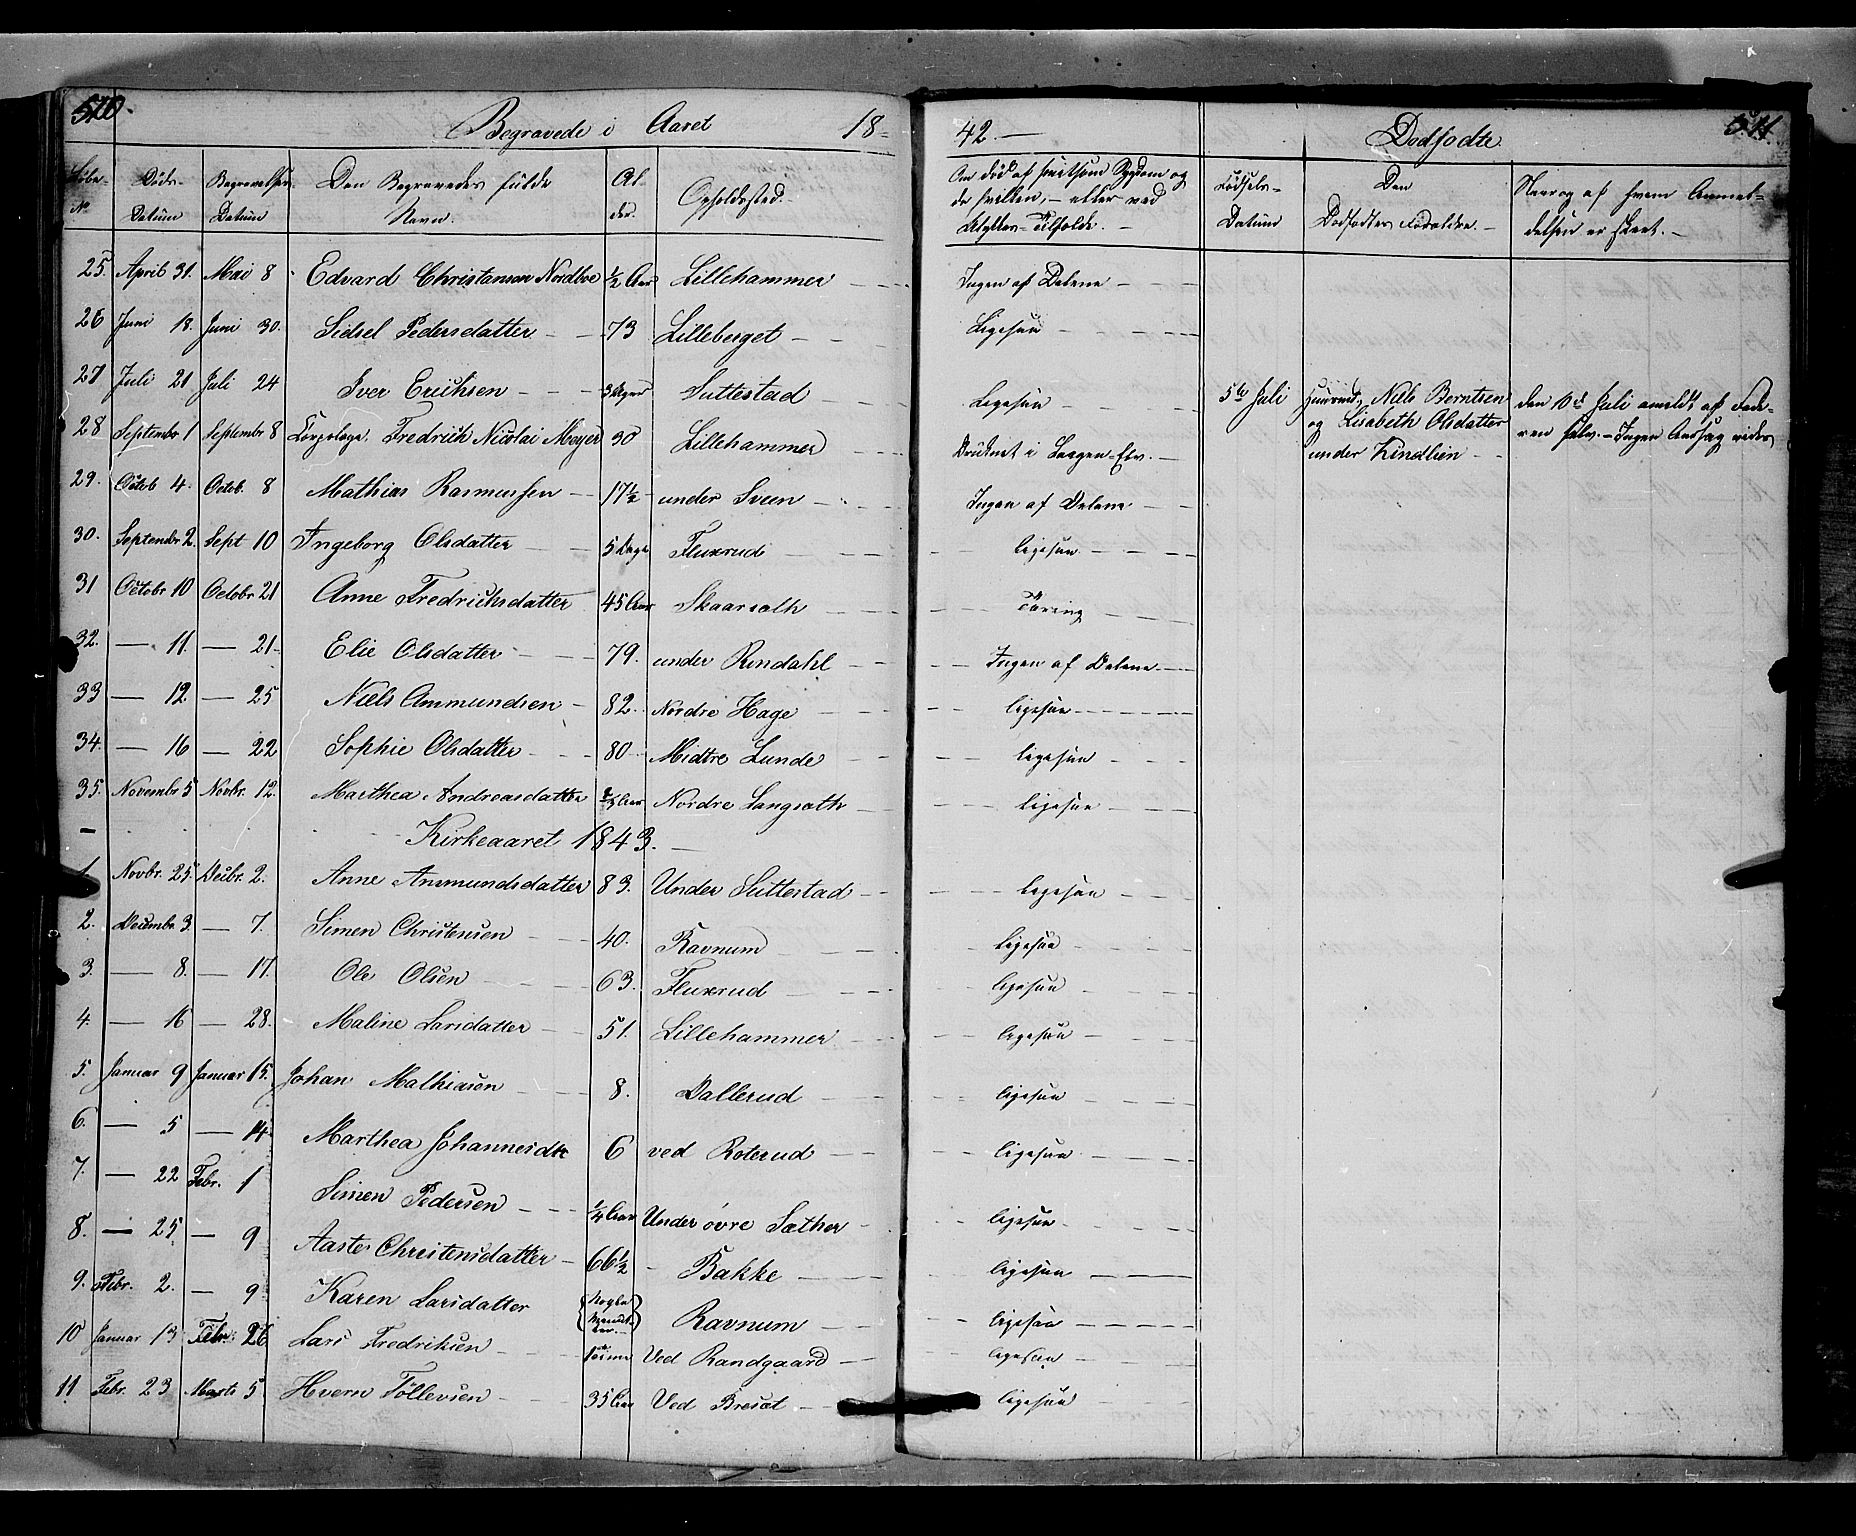 510.
Begravede i Aaret 18-
42. —
Dødfødte
511.
Løbe- Døds- Begravelses- Den Begravedes fulde Al- Opholdssted.
No Datum Datum Navn. der.
Om død af smitsom Sygdom og
de hvilken, — eller ved
Ulykkes-Tilfælde. —
Fødsels-
Datum
Den
Dødfødtes Forældre. —
Naar og af hvem Anmel-
delsen er skeet. —
25. April 31. Mai 8 Edvard Christianson Nordboe 1/2 Aar Lillehammer Ingen af Delene
26 Juni 18. Juni 30. Sidsel Pedersdatter 73 Lilleberget Ligesaa
27 Juli 21 Juli 24 Iver Erichsen 3 Uger Suttestad Ligesaa
5te Juli
Huusmd. Niels Berntsen
og Lisabeth Olsdatter
under Kindlien
den 10d Juli anmeldt af Fade-
ren selv. — Ingen Ansøg
28 Septembr 1 Septembr 8 Fredrich Nicolai Mejer 30 Lillehammer Druknet i Laagen-Elv.
29. Octob 4. Octob. 8 Mathias Rasmussen 17 1/2 under Sveen Ingen af Delene
30. Septembr 2. Sept 10 Ingeborg Olsdatter 5 Dage Fluxrud ligesaa
31 Octobr 10 Octobr 21 Anne Fredrichsdatter 45 Aar Skaarsæth Tæring
32. — 11. — 21. Elie Olsdatter 79. under Rindahl Ingen af Delene
33 — 12 — 25 Niels Ammundsen 82. Nordre Hage ligesaa
34. — 16 — 22 Sophie Olsdatter 80 Midtre Lunde ligesaa
35. Novembr 5 Novbr. 12. Marthea Andreasdatter Aar Nordre Langsæth ligesaa
Kirkeaaret 1843.
1. Novbr. 25. Decbr. 2. Anne Ammundsdatter 83. Under Suttestad ligesaa
2. Decembr 3. — 7. Simen Christensen 40. Ravnum ligesaa
3. — 8. — 17. Ole Olsen 63. Fluxrud ligesaa
4. — 16 — 28. Maline Larsdatter 51. Lillehammer ligesaa
5. Januar 9 Januar 15. Johan Mathiasen 8. Dallerud ligesaa
6. — 5 — 14 Marthea Johannesdtr 6 ved Roterud ligesaa
7. — 22 Febr. 1 Simen Pedersen 1/4 Aar Under øvre Sæther ligesaa
8. — 25 — 9 Aaste Christensdatter 66 1/2 Bakke ligesaa
9. Febr. 2. — 9 Karen Larsdatter Nogle Minutter Ravnum ligesaa
10 Januar 13 Febr. 26 Lars Fredriksen 1 Time Ved Randgaard ligesaa
11 Febr. 23 Marts 5 Hvern Tollevsen 35 Aar Ved Bresat ligesaa